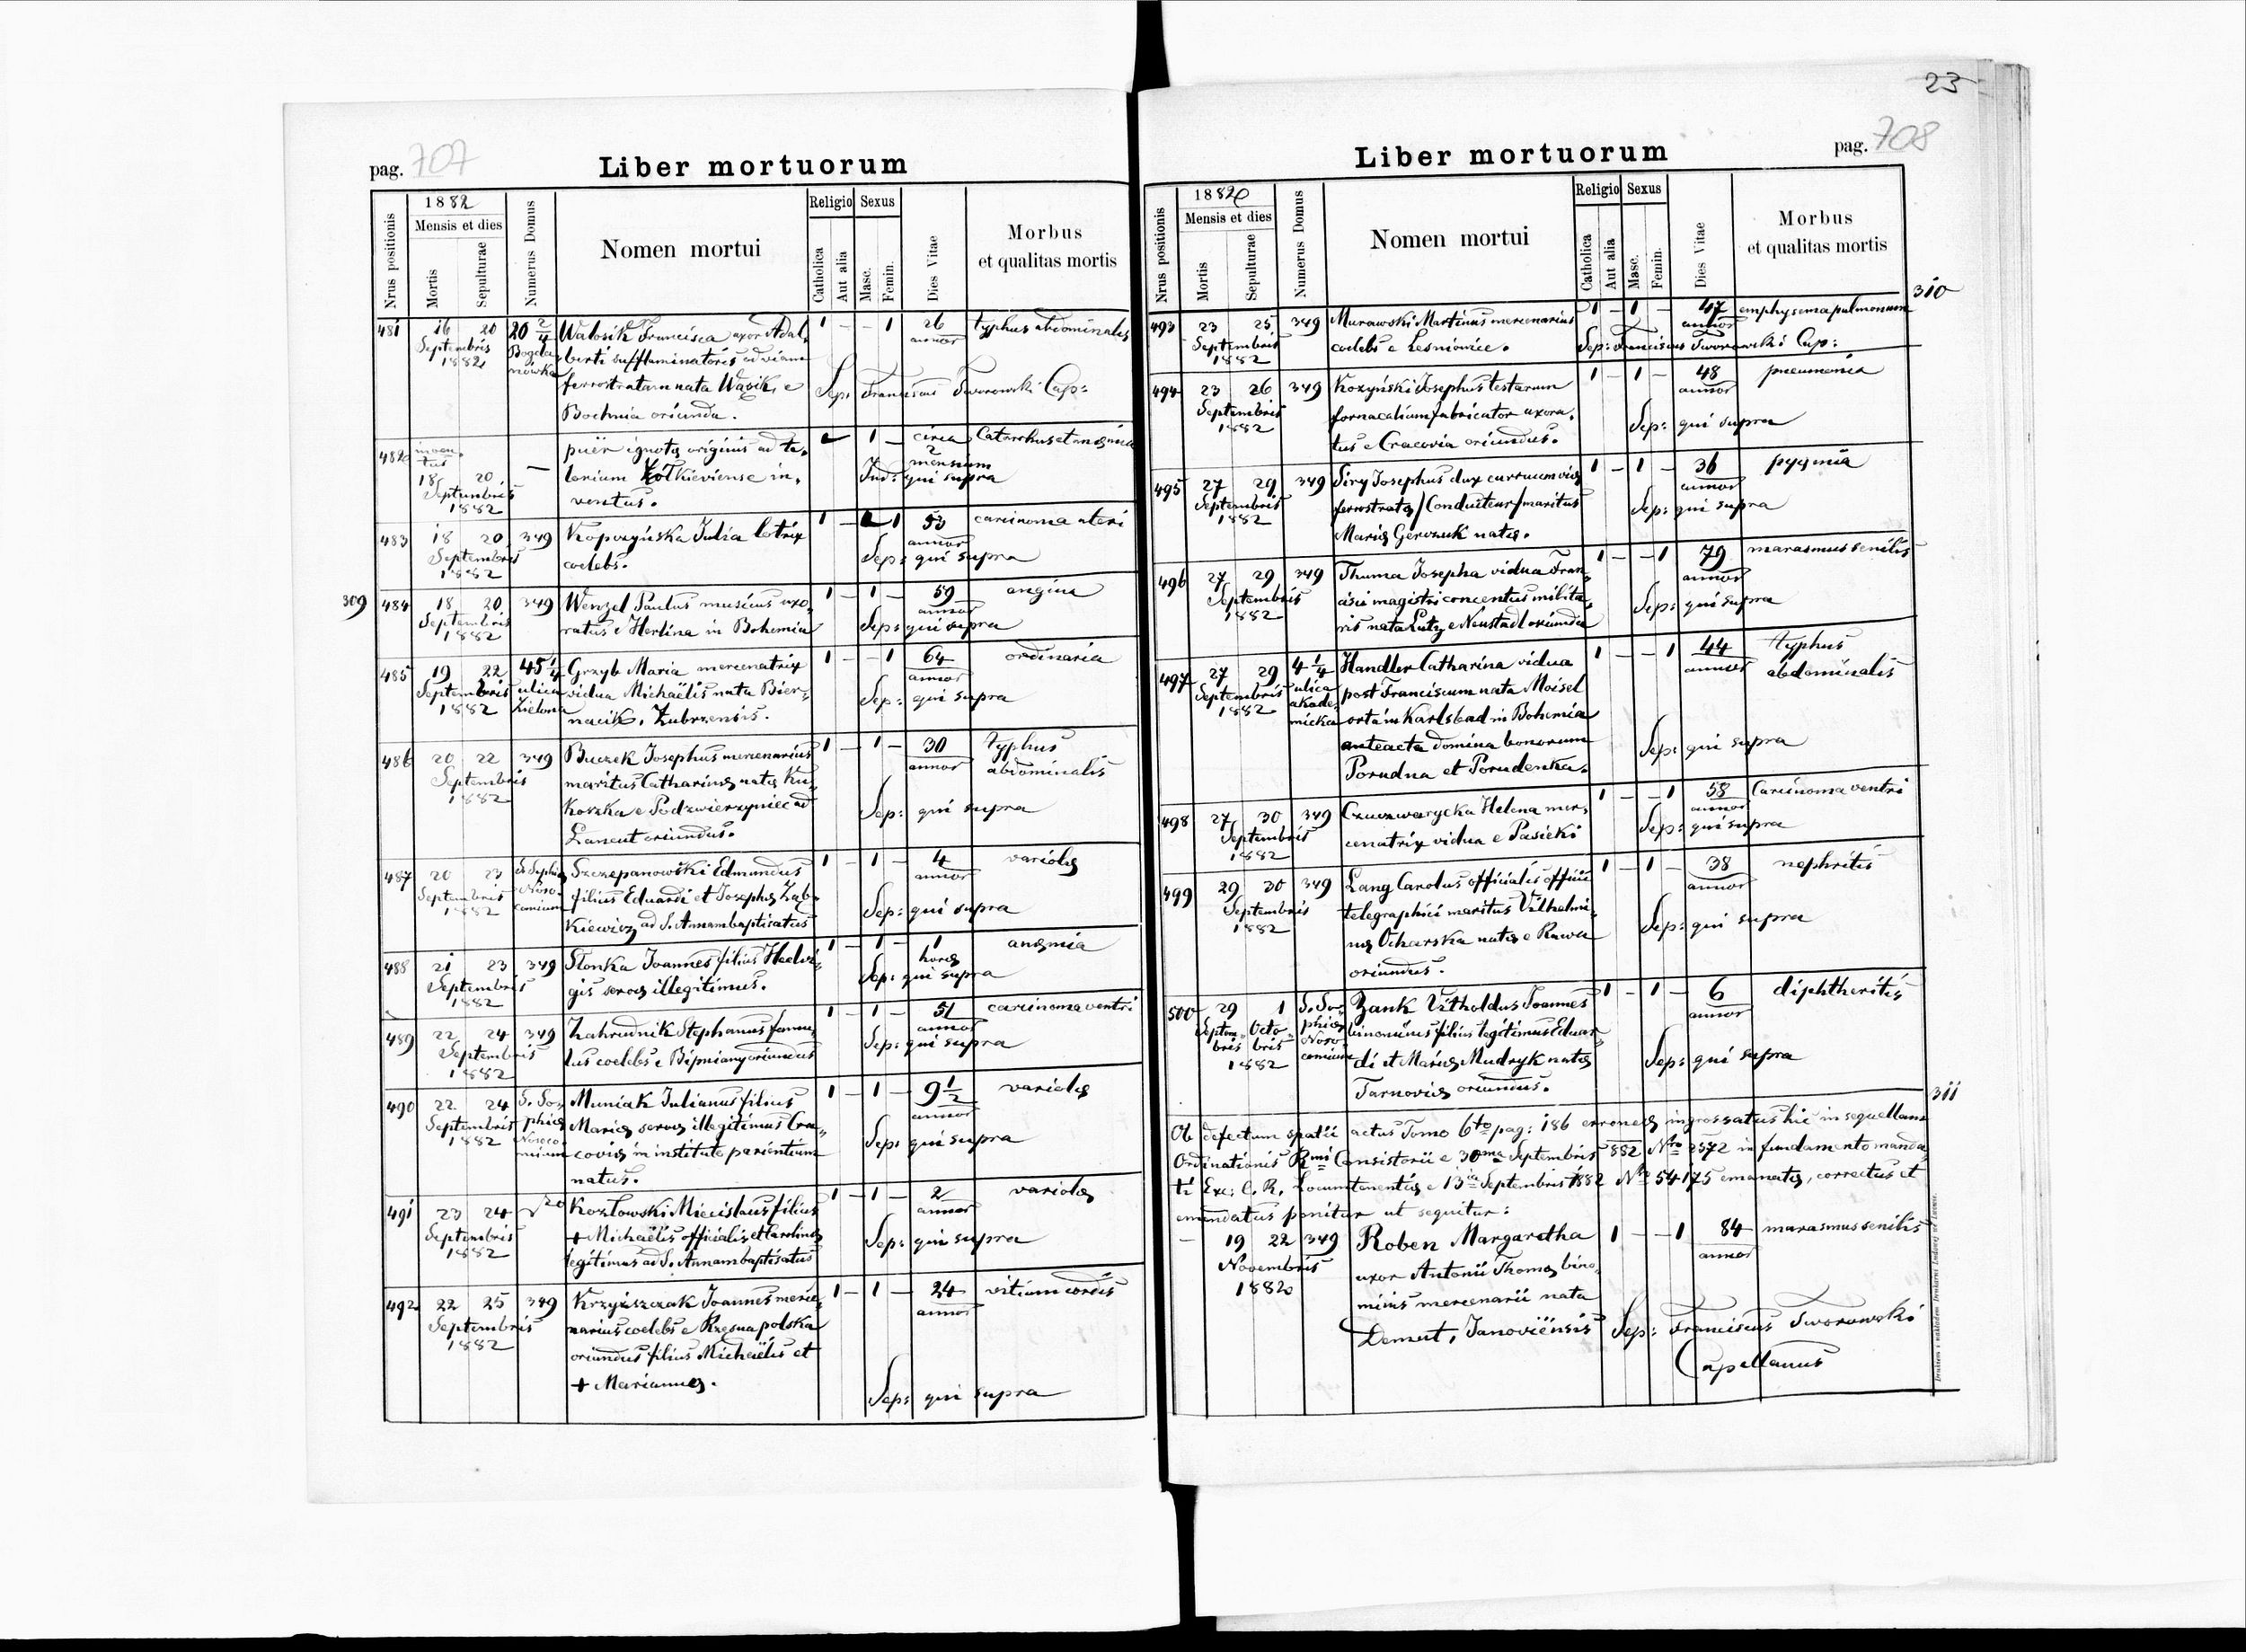 23
pag. 707
Liber mortuorum
Nrus positionis
1882
Mensis et dies
Mortis
Sepulturae
Numerus Domus
Nomen mortui
Religio
Catholica
Aut alia
Sexus
Masc.
Femin.
Dies Vitae
Morbus
et qualitas mortis
481 16 20 20 2/4 Watosik Francisca uxor Adal, 1 - - 1 26 typhus abdominalis
Septembris Bogda berti sufflaminatoris ad viam annor
1882 nowka ferrostratam nata Wąsik, e Sep: Franciscus Tworowski Cap:
Bochnia oriunda.
482 inven, puer ignotę originis ad te, 1 - circa Catarrhus et anęmia
tus 2
18 20 — lonium Żółkieviense in, mensium
Septembris ventus. Ind: qui supra
1882
483 18 20 349 Kopczyńska Julia lotrix 1 - 1 53 carcinoma uteri
Septembris coelebs. annor
1882 Sep: qui supra
309
484 18 20 349 Wenzel Paulus musicus uxo, 1 - 1 - 59 angina
Septembris ratus e Herlina in Bohemia annor
1882 Sep: qui supra
485 19 22 45 1/4 Grzyb Maria mercenatrix 1 - - 1 64 ordinaria
Septembris ulica vidua Michaëlis nata Bier, annor
1882 Zielona nacik, Zubrzensis. Sep: qui supra
486 20 22 349 Buczek Josephus mercenarius 1 - 1 - 30 typhus
Septembris maritus Catharinę natę Ku, annor abdominalis
1882 koszka e Podzwierzyniec ad Sep: qui supra
Lancut oriundus.
487 20 23 S. Sophię Szczepanowski Edmundus 1 - 1 - 4 variolę
Septembris Noso, filius Eduardi et Josephę Zab, annor
1882 comium kiewicz ad S. Annam baptisatus Sep: qui supra
488 21 23 349 Slonka Joannes filius Hedvi, 1 - 1 - 1 anęmia
Septembris gis servę illegitimus. horę
1882 Sep: qui supra
489 22 24 349 Zahrudnik Stephanus famu, 1 - 1 - 51 carcinoma ventri
Septembris lus coelebs e Bipniany oriundus annor
1882 Sep: qui supra
490 22 24 S. So, Muniak Julianus filius 1 - 1 - 9 1/2 variolę
Septembris phię Marię servę illegitimus Cra, annor
1882 Nosoco, covię in instituto parientium Sep: qui supra
mium natus.
491 23 24 Kozłowski Miecislaus filius 1 - 1 - 2 variolę
Septembris + Michaëlis officialis et Carolinę annor
1882 legitimus ad S. Annam baptisatus Sep: qui supra
492 22 25 349 Krzyszczak Joannes merce, 1 - 1 - 24 vitium cordis
Septembris narius coelebs e Rzęsna polska annor
1882 oriundus filius Michaëlis et
+ Mariannę. Sep: qui supra
pag. 708
Liber mortuorum
Nrus positionis
1882
Mensis et dies
Mortis
Sepulturae
Numerus Domus
Nomen mortui
Religio
Catholica
Aut alia
Sexus
Masc.
Femin.
Dies Vitae
Morbus
et qualitas mortis
310
493 23 25 349 Murawski Martinus mercenarius 1 - 1 - 47 emphysema pulmonum
Septembris coelebs e Lesniowice. annor
1882 Sep: Franciscus Tworowski Cap:
494 23 26 349 Kozyński Josephus testarum 1 - 1 - 48 pneumonia
Septembris fornacalium fabricator uxora, annor
1882 tus e Cracovia oriundus. Sep: qui supra
495 27 29 349 Siry Josephus dux curruum vię 1 - 1 - 36 pyęmia
Septembris ferrostratę /Conduiteur/ maritus annor
1882 Marię Gerczuk natę. Sep: qui supra
496 27 29 349 Thuma Josepha vidua Fran, 1 - - 1 79 marasmus senilis
Septembris cisci magistri concentus milita, annor
1882 ris nata Lutz e Neustadt oriunda Sep: qui supra
497 27 29 4 1/4 Handler Catharina vidua 1 - - 1 44 typhus
Septembris ulica post Franciscum nata Moisel annor abdominalis
1882 akade, orta in Karlsbad in Bohemia
micka anteacta domina bonorum Sep: qui supra
Porudna et Porudenka.
498 27 30 349 Czuczwarycka Helena mer, 1 - - 1 58 Carcinoma ventri
Septembris cenatrix vidua e Pasieki annor
1882 Sep: qui supra
499 29 30 349 Lang Carolus officialis officii 1 - 1 - 38 nephritis
Septembris telegraphici maritus Vilhelmi, annor
1882 nę Ocharska natę e Rawa Sep: qui supra
oriundus.
500 29 1 S. So, Zank Vitholdus Joannes 1 - 1 - 6 diphtheritis
Septem, Octo, phię binominus filius legitimus Eduar, annor
bris bris Noso, di et Marię Mudryk natę Sep: qui supra
1882 comium Tarnovię oriundus.
311
Ob defectum spatii actus Tomo 6to pag: 186 erroneę ingrossatus hic in sequellam
Ordinationis Rmi Consistorii e 30ma Septembris 882 Nro 2572 in fundamento manda,
ti Exc: C. R. Locumtenentię e 13ia Septembris 1882 Nro 54175 emanatę, correctus et
emendatus ponitur ut sequitur:
— 19 22 349 Roben Margaretha 1 - - 1 84 marasmus senilis
Novembris uxor Antonii Thomę bino, annor
1882 minis mercenarii nata
Demut, Janoviensis Sep: Franciscus Tworowski
Capellanus